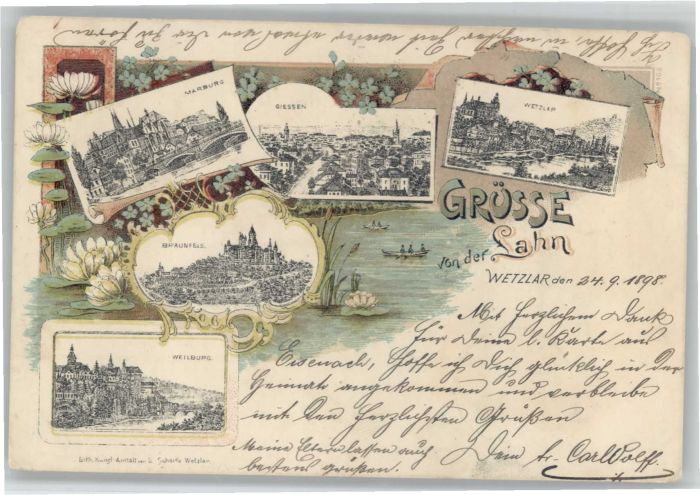 Ich hoffe, in nächster Zeit wieder etwas von Dir zu hören
MARBURG
GIESSEN
WETZLAR
GRÜSSE
von der Lahn
BRAUNFELS.
WETZLAR den 24. 9. 1898.
Mit herzlichem Dank
für Deine l. Karte aus
Eisenach, hoffe ich Dich glücklich in der
Heimat angekommen und verbleibe
mit den herzlichsten Grüßen
WEILBURG.
Dein tr. Carl Wolff.
Meine Eltern lassen auch
bestens grüßen.
Lith. Kunst-Anstalt von L. Scharfe Wetzlar